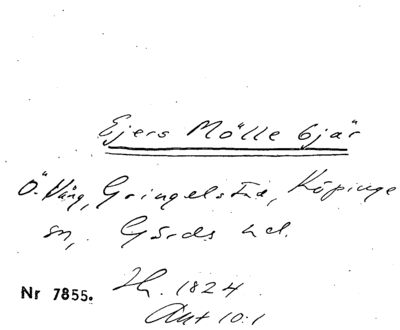 Ejers Mölle bjär
Ö. Väng, Gringelstad, Köpinge
sn, Gärds hd.
Nr 7855. Jh. 1824
Akt 10:1